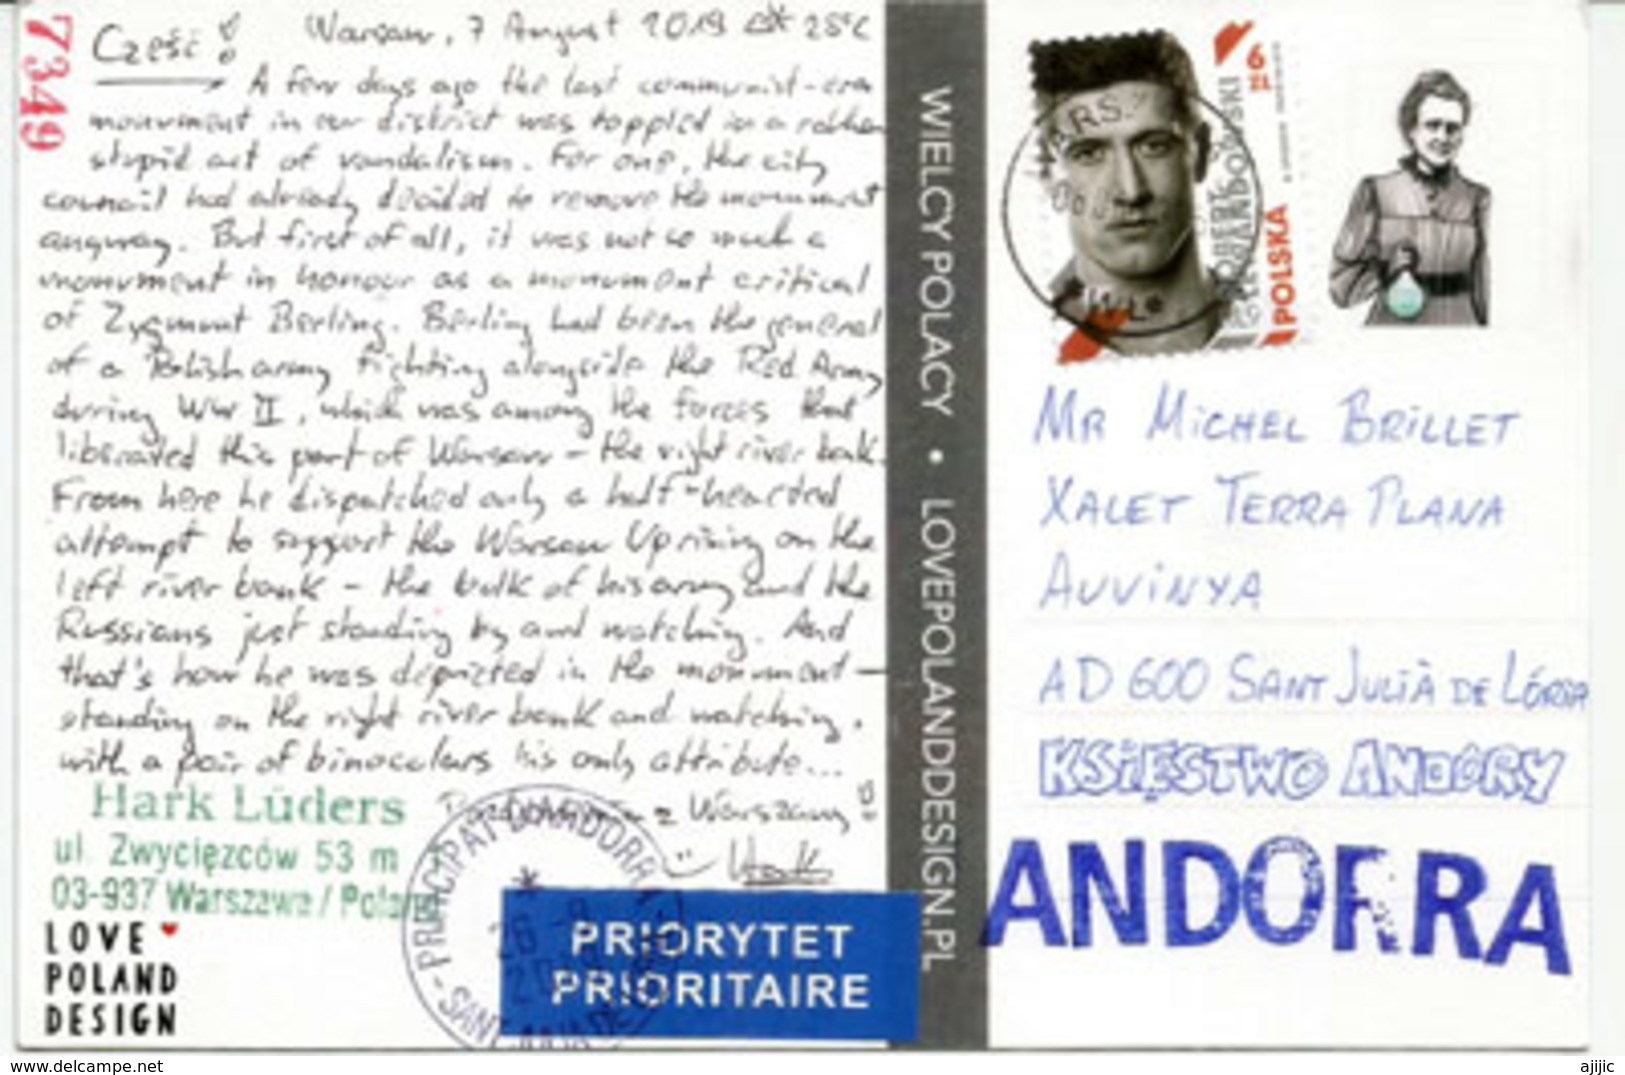 73449
Cześć! Warsaw, 7 August 2019 25°C
A few days ago the last communist-era
monument in our district was toppled in a rather
stupid act of vandalism. For one, the city
council had already decided to remove the monument
anyway. But first of all, it was not so much a
monument in honour as a monument critical
of Zygmunt Berling. Berling had been the general
of a Polish army fighting alongside the Red Army
during WW II, which was among the forces that
liberated this part of Warsaw – the right river bank.
From here he dispatched only a half-hearted
attempt to support the Warsaw Uprising on the
left river bank – the bulk of his army and the
Russians just standing by and watching. And
that's how he was depicted in the monument –
standing on the right river bank and watching,
with a pair of binoculars his only attribute...
Pozdrowienia z Warszawy!
Hark
Hark Lüders
ul. Zwycięzców 53 m
03-937 Warszawa / Poland
LOVE
POLAND
DESIGN
PRINCIPAT D'ANDORRA
26
SANT JULIA DE
PRIORYTET
PRIORITAIRE
WIELCY POLACY • LOVEPOLANDDESIGN.PL
6 ZŁ
ROBERT LEWANDOWSKI
POLSKA
MR MICHEL BRILLET
XALET TERRA PLANA
AUVINYA
AD 600 SANT JULIÀ DE LÓRIA
KSIĘSTWO ANDORY
ANDORRA
www.delcampe.net
ajijic